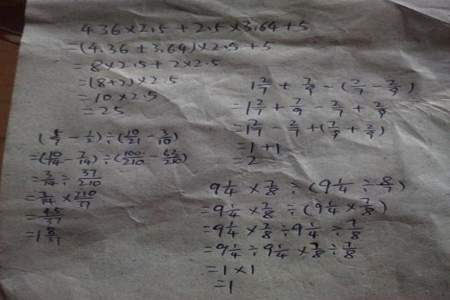 4.36×2.5+2.5×3.64+5
=(4.36+3.64)×2.5+5
=8×2.5+2×2.5
=(8+2)×2.5
=10×2.5
=25
1 2/7 + 7/9 - (2/7 - 2/9)
=1 2/7 + 7/9 - 2/7 + 2/9
=1 2/7 - 2/7 + (7/9 + 2/9)
=1+1
=2
(5/7 - 1/2) ÷ (10/21 - 3/10)
=(10/14 - 7/14) ÷ (100/210 - 63/210)
=3/14 ÷ 37/210
=3/14 × 210/37
=45/37
=1 8/37
9 1/4 × 7/8 ÷ (9 1/4 ÷ 8/7)
=9 1/4 × 7/8 ÷ (9 1/4 × 7/8)
=9 1/4 × 7/8 ÷ 9 1/4 ÷ 7/8
=9 1/4 ÷ 9 1/4 × 7/8 ÷ 7/8
=1×1
=1